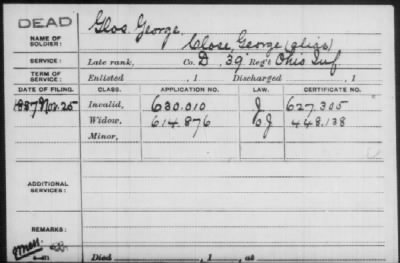 DEAD
NAME OF SOLDIER: Glos, George
Close, George (alias)
SERVICE: Late rank, Co. D, 39 Reg't Ohio Inf
TERM OF SERVICE: Enlisted , 1 Discharged , 1
DATE OF FILING. CLASS. APPLICATION NO. LAW. CERTIFICATE NO.
1887 Nov. 25 Invalid, 630.010 J 627.305
Widow, 614.876 J 448.138
Minor,
ADDITIONAL SERVICES:
REMARKS:
Died , 1 , at